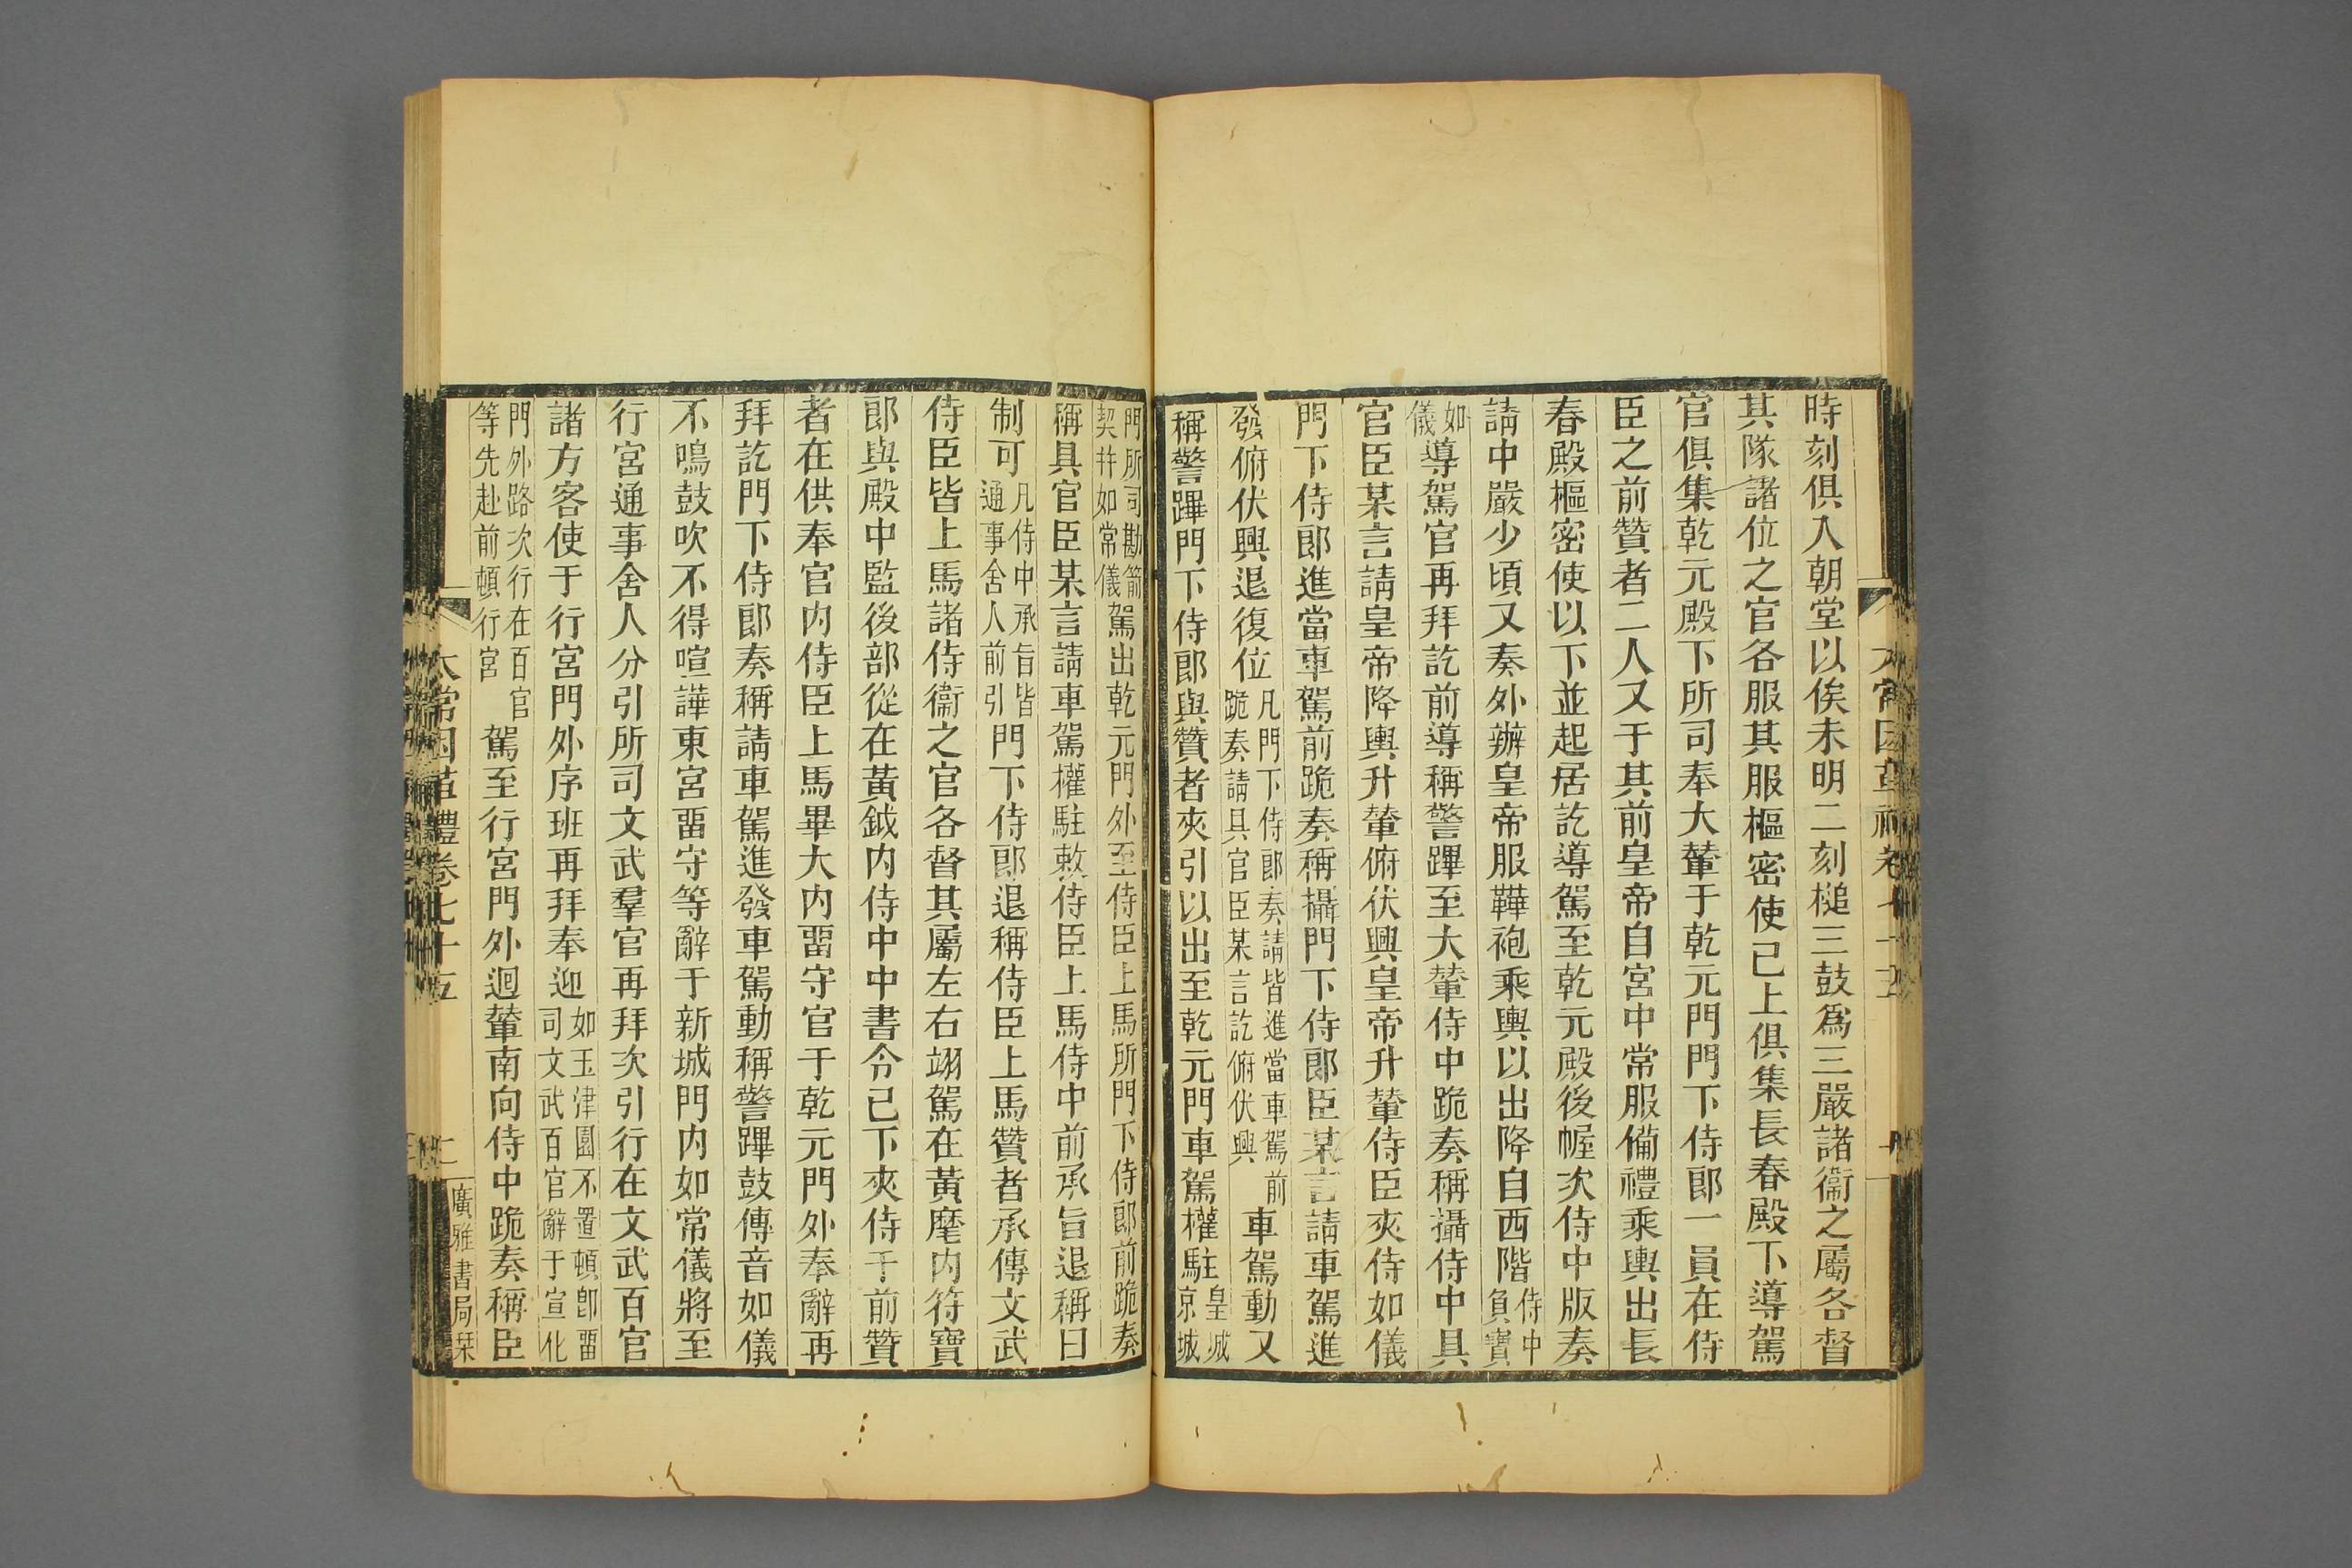 時刻俱入朝堂以俟未明二刻槌三鼓爲三嚴諸衞之屬各督
其隊諸位之官各服其服樞密使已上俱集長春殿下導駕
官俱集乾元殿下所司奉大輦于乾元門門下侍郎一員在侍
臣之前贊者二人又于其前皇帝自宮中常服備禮乘輿出長
春殿樞密使以下並起居訖導駕至乾元殿後幄次侍中版奏
請中嚴少頃又奏外辦皇帝服鞾袍乘輿以出降自西階侍中負寶
如儀導駕官再拜訖前導稱警蹕至大輦侍中跪奏稱攝侍中具
官臣某言請皇帝降輿升輦俯伏興皇帝升輦侍臣夾侍如儀
門下侍郎進當車駕前跪奏稱攝門下侍郎臣某言請車駕進
發俯伏興退復位凡門下侍郎奏請皆進當車駕前跪奏請具官臣某言訖俯伏興車駕動又
稱警蹕門下侍郎與贊者夾引以出至乾元門車駕權駐皇城京城
門所司勘箭契并如常儀駕出乾元門外至侍臣上馬所門下侍郎前跪奏
稱具官臣某言請車駕權駐敕侍臣上馬侍中前承旨退稱曰
制可凡侍中承旨皆通事舍人前引門下侍郎退稱侍臣上馬贊者承傳文武
侍臣皆上馬諸侍衞之官各督其屬左右翊駕在黃麾内符寶
郎與殿中監後部從在黃鉞内侍中中書令已下夾侍于前贊
者在供奉官内侍臣上馬畢大内畱守官于乾元門外奉辭再
拜訖門下侍郎奏稱請車駕進發車駕動稱警蹕鼓傳音如儀
不鳴鼓吹不得喧譁東宮畱守等辭于新城門内如常儀將至
行宮通事舍人分引所司文武羣官再拜次引行在文武百官
諸方客使于行宮門外序班再拜奉迎如玉津園不置頓卽畱司文武百官辭于宣化
門外路次行在百官等先赴前頓行宮駕至行宮門外迴輦南向侍中跪奏稱臣
太常因革禮卷七十五
二
廣雅書局栞